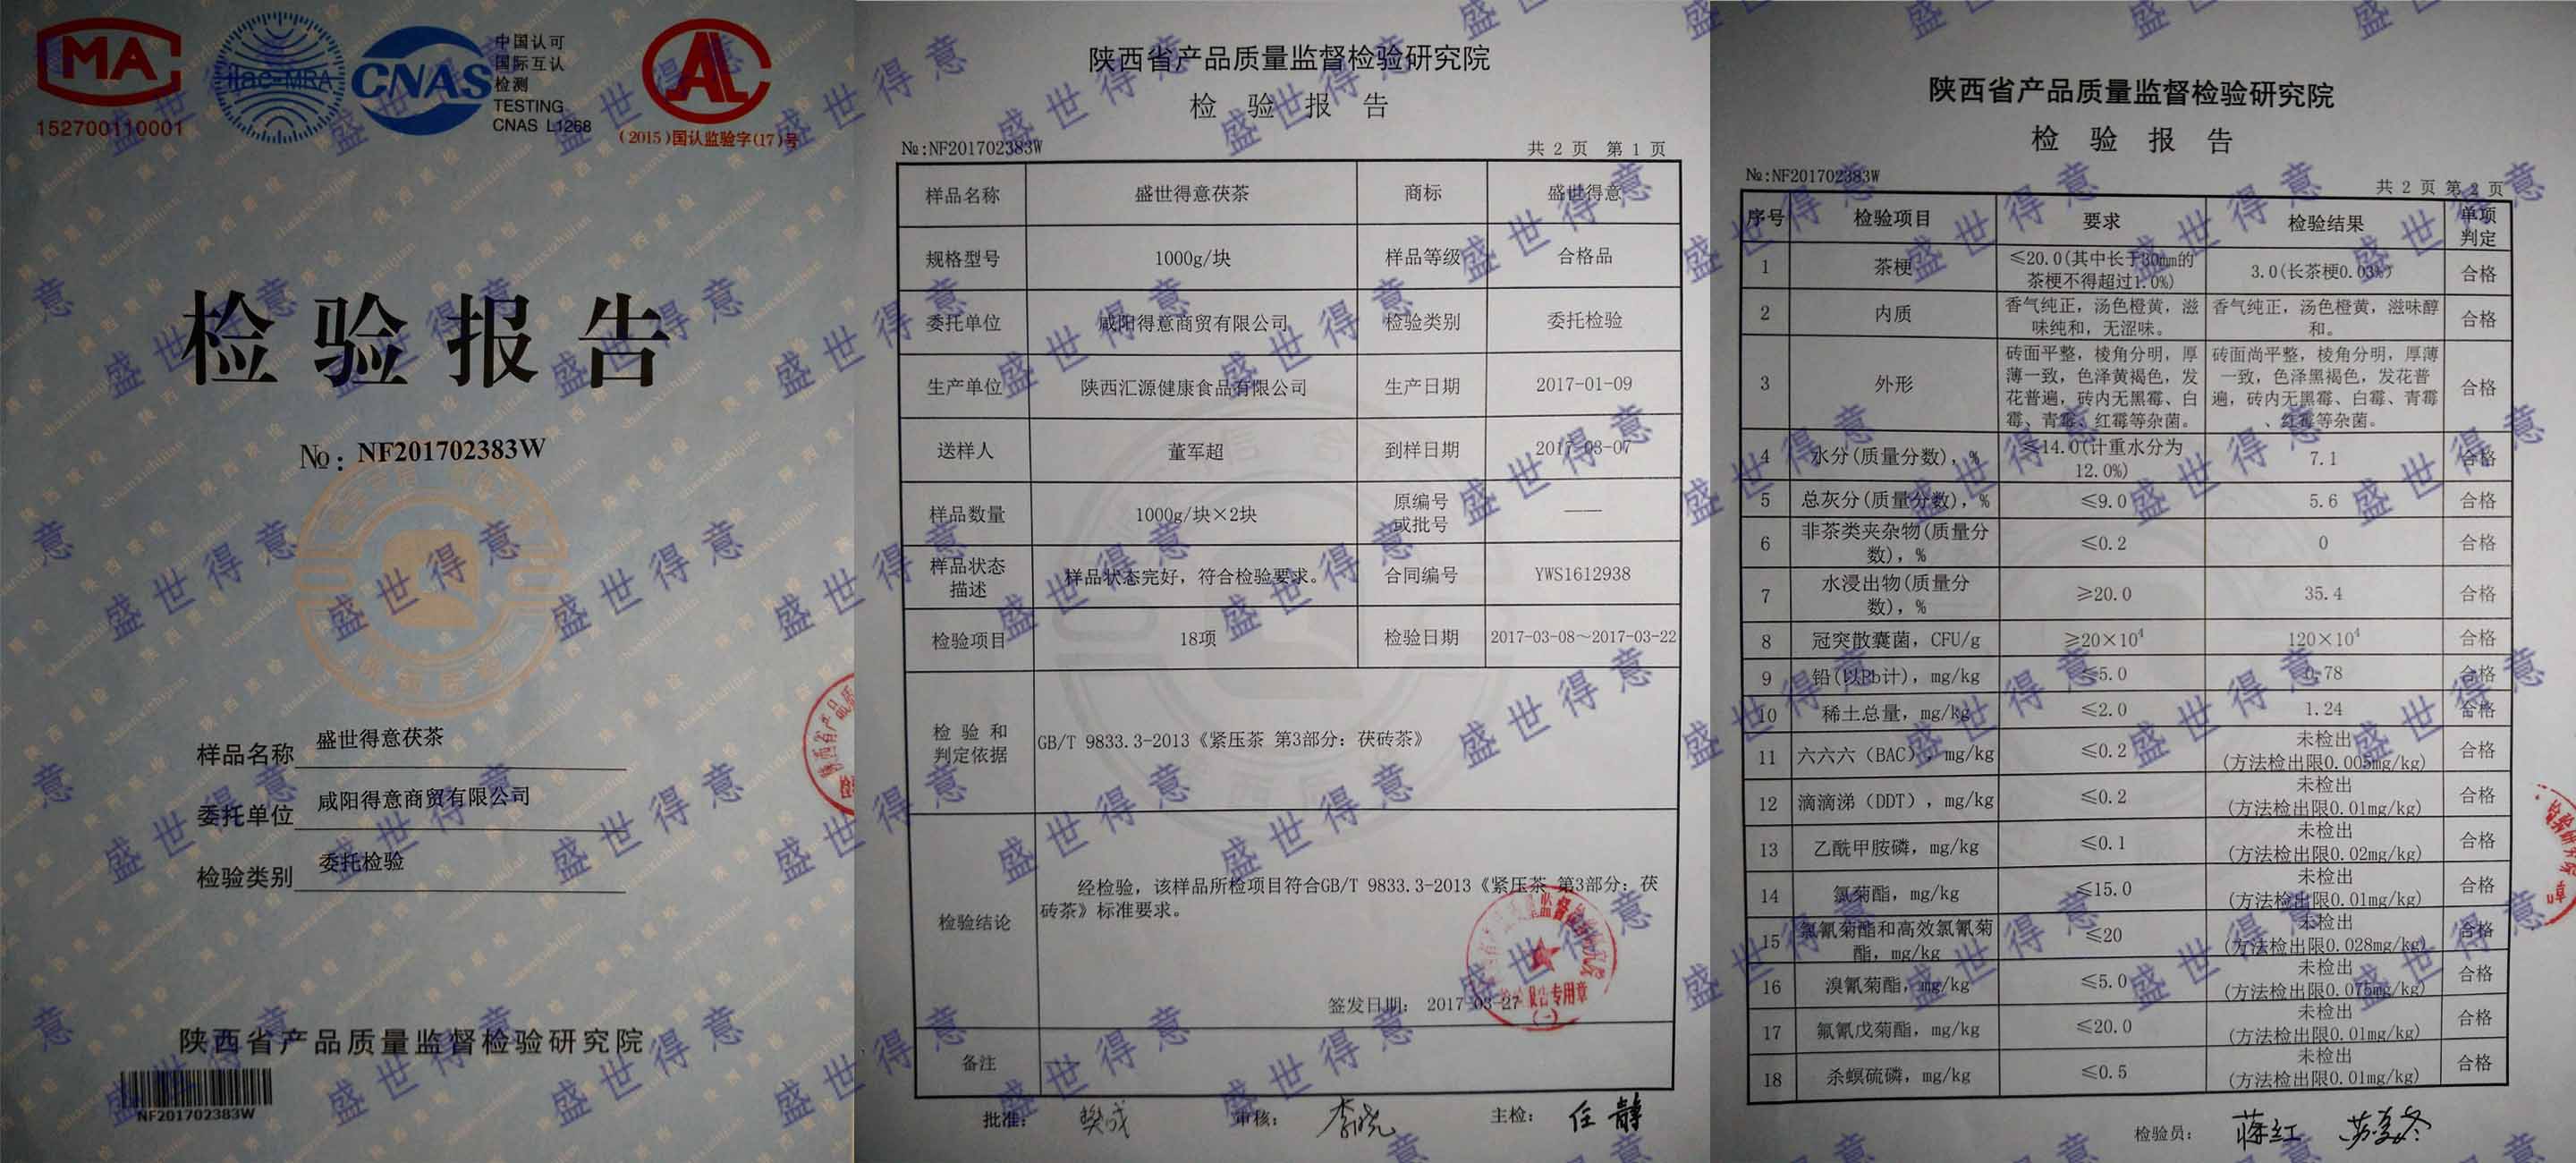 MA
152700110001
ilac-MRA
CNAS
中国认可
国际互认
检测
TESTING
CNAS L1268
CAL
(2015)国认监验字(17)号
检验报告
№: NF201702383W
样品名称 盛世得意茯茶
委托单位 咸阳得意商贸有限公司
检验类别 委托检验
陕西省产品质量监督检验研究院
NF201702383W
陕西省产品质量监督检验研究院
检 验 报 告
№:NF201702383W 共 2 页 第 1 页
样品名称 盛世得意茯茶 商标 盛世得意
规格型号 1000g/块 样品等级 合格品
委托单位 咸阳得意商贸有限公司 检验类别 委托检验
生产单位 陕西汇源健康食品有限公司 生产日期 2017-01-09
送样人 董军超 到样日期 2017-03-07
样品数量 1000g/块×2块 原编号或批号 ——
样品状态描述 样品状态完好，符合检验要求。 合同编号 YWS1612938
检验项目 18项 检验日期 2017-03-08～2017-03-22
检 验 和
判定依据 GB/T 9833.3-2013《紧压茶 第3部分：茯砖茶》
检验结论 经检验，该样品所检项目符合GB/T 9833.3-2013《紧压茶 第3部分：茯
砖茶》标准要求。
签发日期： 2017-03-27
报告专用章
(一)
备注
批准： 樊成 审核： 李晓 主检： 任静
陕西省产品质量监督检验研究院
检 验 报 告
№:NF201702383W
共 2 页 第 2 页
序号 检验项目 要求 检验结果 单项判定
1 茶梗 ≤20.0(其中长于30mm的茶梗不得超过1.0%) 3.0(长茶梗0.03%) 合格
2 内质 香气纯正，汤色橙黄，滋味纯和，无涩味。 香气纯正，汤色橙黄，滋味醇和。 合格
3 外形 砖面平整，棱角分明，厚薄一致，色泽黄褐色，发花普遍，砖内无黑霉、白霉、青霉、红霉等杂菌。 砖面尚平整，棱角分明，厚薄一致，色泽黑褐色，发花普遍，砖内无黑霉、白霉、青霉、红霉等杂菌。 合格
4 水分(质量分数)，% ≤14.0(计重水分为12.0%) 7.1 合格
5 总灰分(质量分数)，% ≤9.0 5.6 合格
6 非茶类夹杂物(质量分数)，% ≤0.2 0 合格
7 水浸出物(质量分数)，% ≥20.0 35.4 合格
8 冠突散囊菌，CFU/g ≥20×10⁴ 120×10⁴ 合格
9 铅(以Pb计)，mg/kg ≤5.0 0.78 合格
10 稀土总量，mg/kg ≤2.0 1.24 合格
11 六六六（BAC），mg/kg ≤0.2 未检出(方法检出限0.005mg/kg) 合格
12 滴滴涕（DDT），mg/kg ≤0.2 未检出(方法检出限0.01mg/kg) 合格
13 乙酰甲胺磷，mg/kg ≤0.1 未检出(方法检出限0.02mg/kg) 合格
14 氯菊酯，mg/kg ≤15.0 未检出(方法检出限0.01mg/kg) 合格
15 氯氰菊酯和高效氯氰菊酯，mg/kg ≤20 未检出(方法检出限0.028mg/kg) 合格
16 溴氰菊酯，mg/kg ≤5.0 未检出(方法检出限0.075mg/kg) 合格
17 氟氰戊菊酯，mg/kg ≤20.0 未检出(方法检出限0.01mg/kg) 合格
18 杀螟硫磷，mg/kg ≤0.5 未检出(方法检出限0.01mg/kg) 合格
检验员：
盛世得意